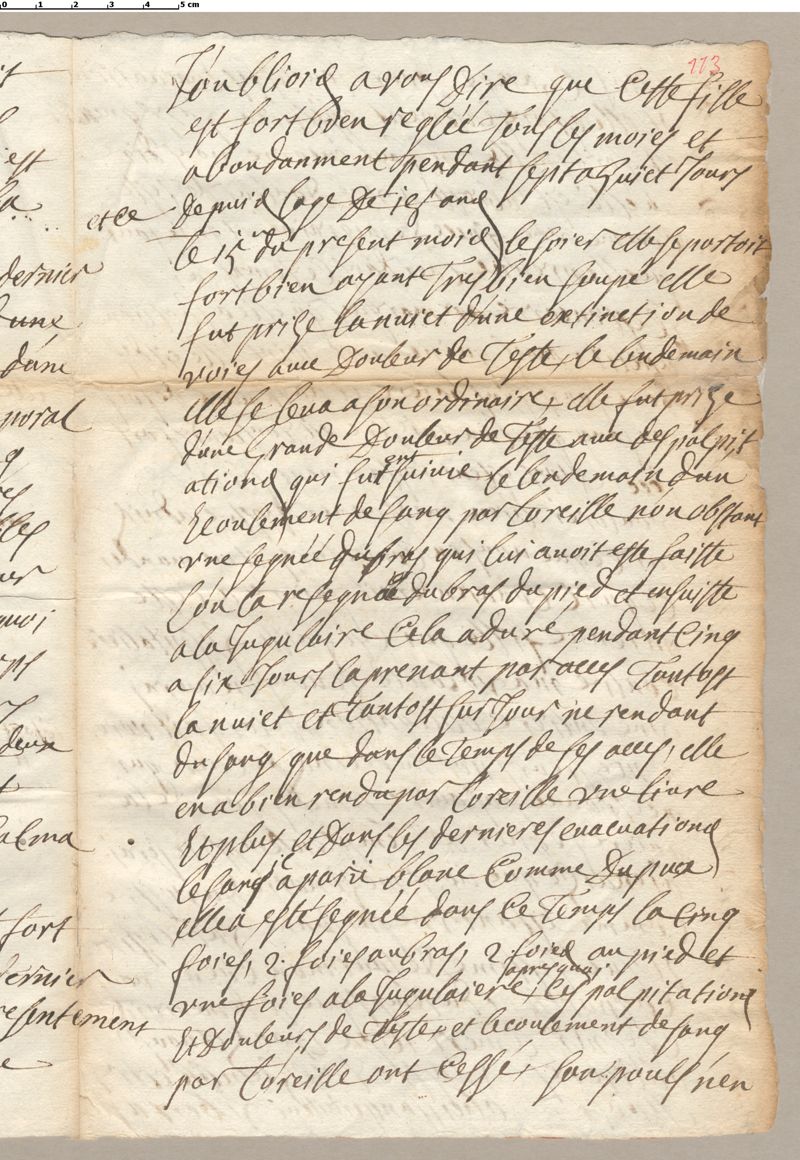 0 1 2 3 4 5 cm
113
J'oubliois a vous Dire que Cette fille
est fort bien reglée Tous les mois et
abondanment pendant sept a huiet Jours
et ce depuis lage De ans
le 15 du present mois le soier elle se portoit
fort bien ayant Tres bien soupé elle
fut prize la nuiet d'une extinction de
voies avec Douleur de Teste, le lendemain
elle se leva a son ordinaire, elle fut prize
d'une Grande Douleur de Teste avec des palpit
ations qui furent suivie le lendemain d'un
Ecoulement de sang par l'oreille nonobstant
une segnée du bras qui lui avoit este faitte
l'on la resegnée du bras du pied et ensuitte
a la Jugulaire Cela a duré pendant Cinq
a six Jours la prenant par acces Tantost
la nuiet et Tantost sur Jour ne rendant
du sang que dans le Temps de ses acces, elle
en a bien rendu par l'oreille une livre
Et plus et Dans les dernieres evacuations
le sang a parü blanc Comme Du pux
elle a esté segnée dans Ce Temps la cinq
foies, 2. foies au bras, 2 foies au pied et
une foies a la Jugulaiere, apres quoi les palpitations
Et Douleurs de Teste, et lecoulement de sang
par l'oreille ont Cessé, son pouls n'en
est
dernier
d'une
d'une
poral
quoi
deux
calma
fort
dernier
presentement